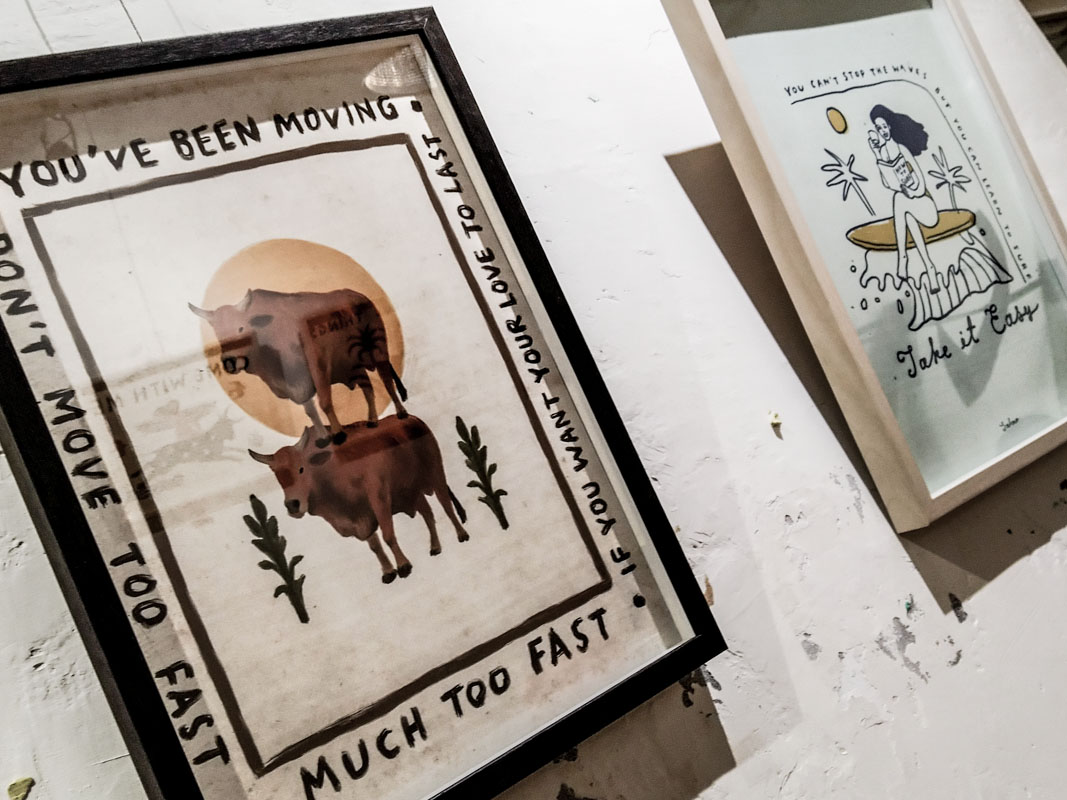 YOU'VE BEEN MOVING
MUCH TOO FAST
IF YOU WANT YOUR LOVE TO LAST
DON'T MOVE TOO FAST
YOU CAN'T STOP THE WAVES
BUT YOU CAN LEARN TO SURF
Take it Easy